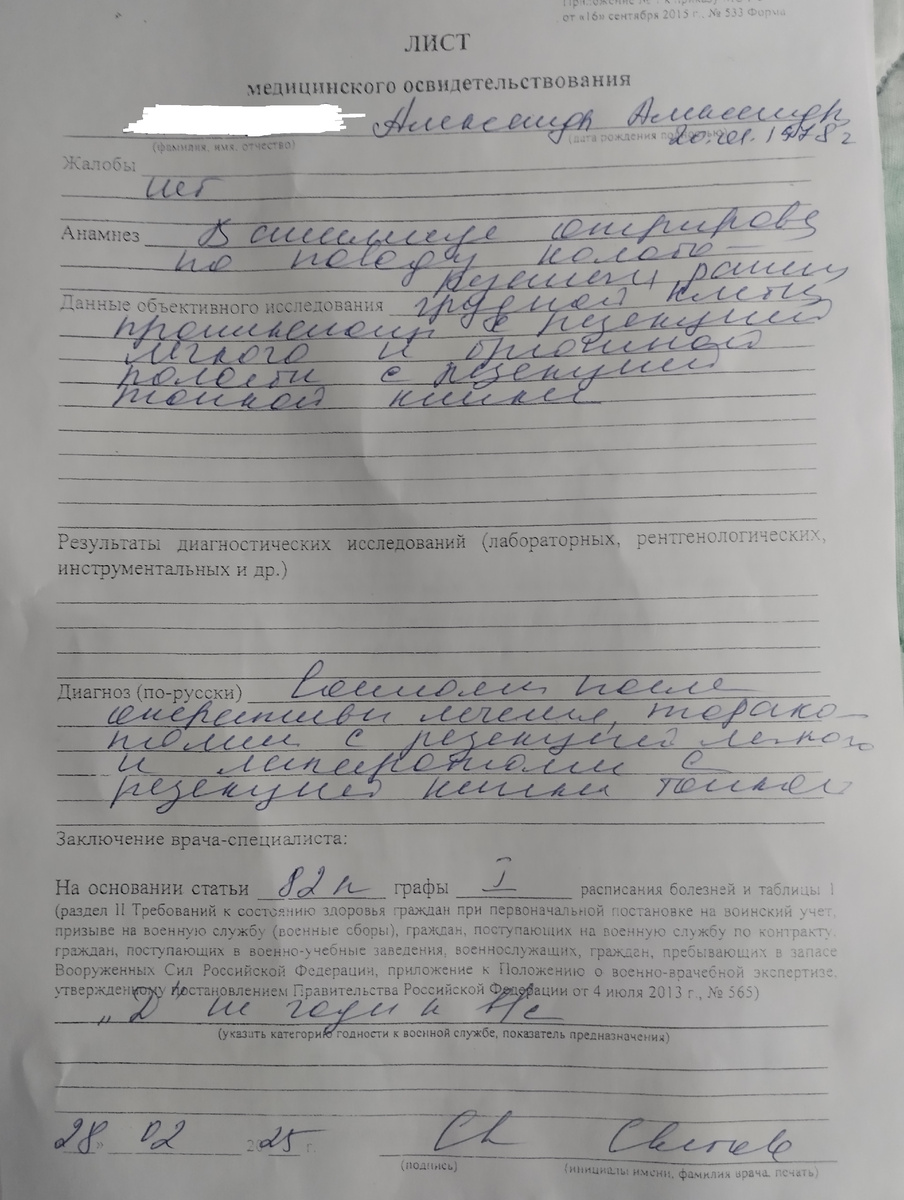 от «16» сентября 2015 г., № 533 Форма
ЛИСТ
медицинского освидетельствования
Александр
(фамилия, имя, отчество) (дата рождения
Жалобы
нет
Анамнез В оперирова
по поводу колото-
резаной раны
Данные объективного исследования грудной клетки
с резекцией
легкого и брюшной
полости с резекцией
тонкой кишки
Результаты диагностических исследований (лабораторных, рентгенологических,
инструментальных и др.)
Диагноз (по-русски) после
лечения, торако-
томии с резекцией легкого
и лапаротомии с
резекцией кишки тонкой
Заключение врача-специалиста:
На основании статьи 82 графы I расписания болезней и таблицы 1
(раздел II Требований к состоянию здоровья граждан при первоначальной постановке на воинский учет,
призыве на военную службу (военные сборы), граждан, поступающих на военную службу по контракту,
граждан, поступающих в военно-учебные заведения, военнослужащих, граждан, пребывающих в запасе
Вооруженных Сил Российской Федерации, приложение к Положению о военно-врачебной экспертизе,
утвержденному постановлением Правительства Российской Федерации от 4 июля 2013 г., № 565)
„Д" не годен к в/с
(указать категорию годности к военной службе, показатель предназначения)
28 02 2025 г.
(подпись) (инициалы имени, фамилия врача, печать)